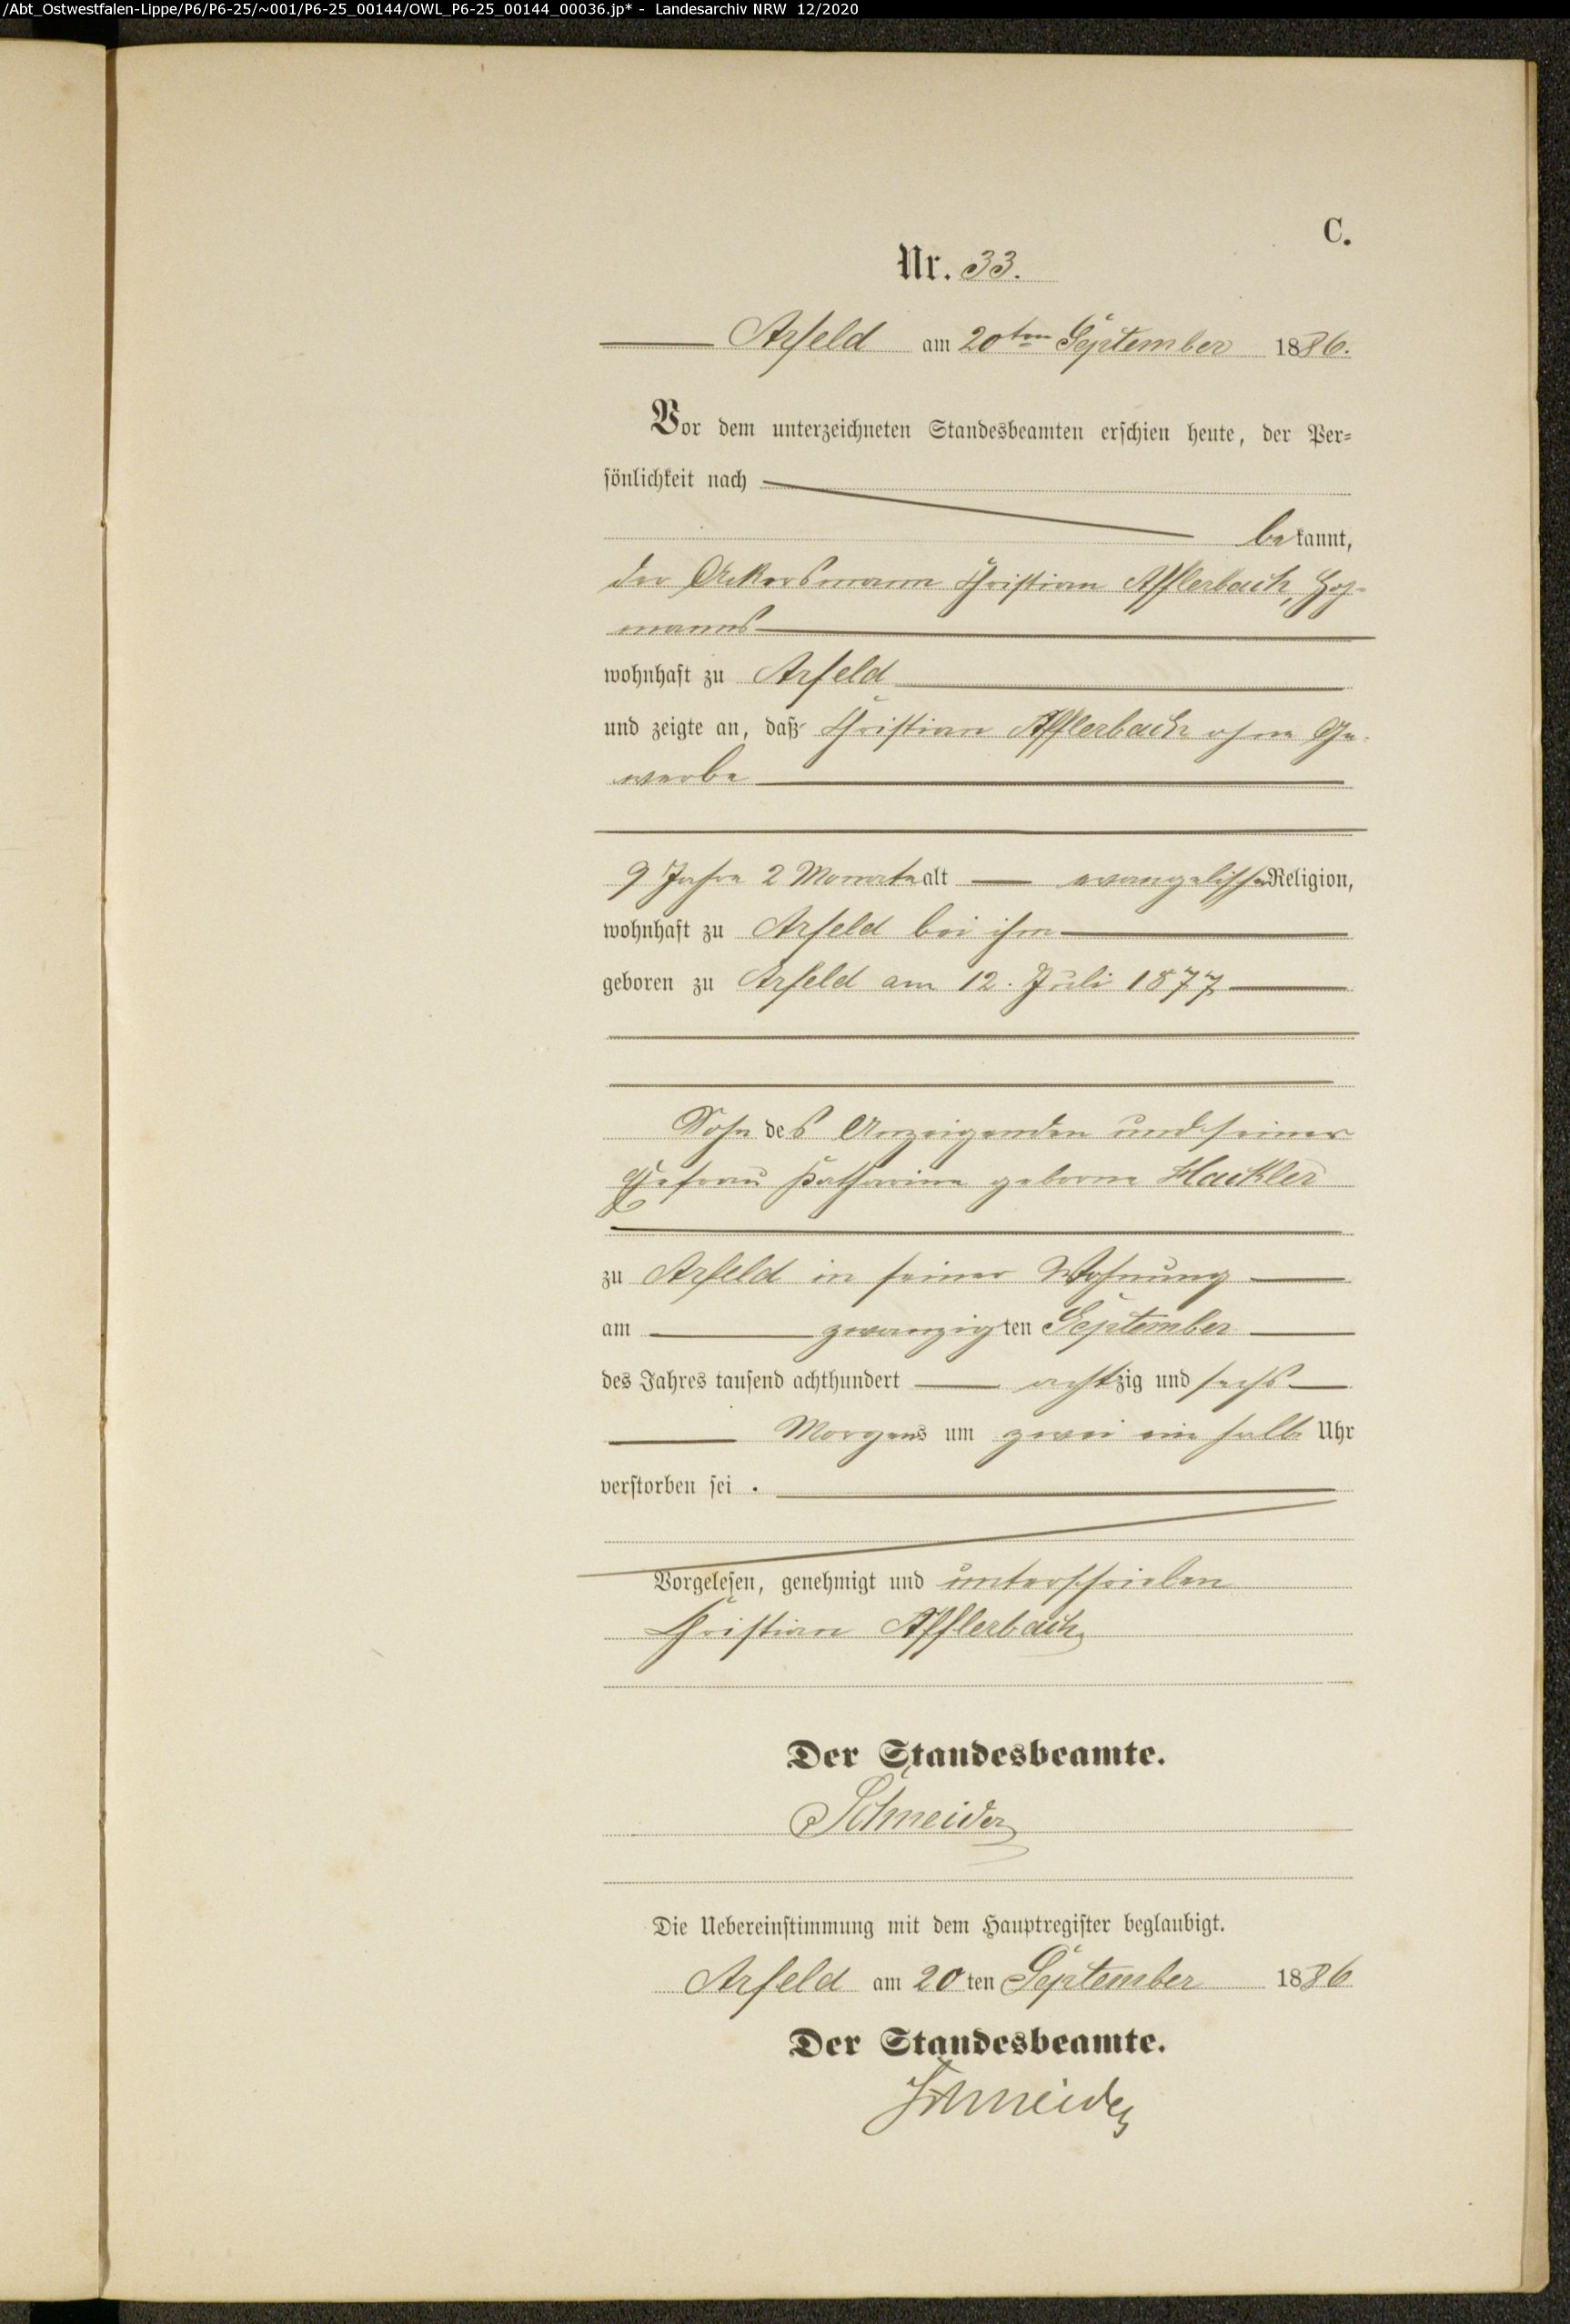 /Abt_Ostwestfalen-Lippe/P6/P6-25/~001/P6-25_00144/OWL_P6-25_00144_00036.jp* - Landesarchiv NRW 12/2020
C.
Nr. 33.
Arfeld am 20ten September 1886.
Vor dem unterzeichneten Standesbeamten erschien heute, der Per-
sönlichkeit nach
bekannt,
der Ackersmann Christian Afflerbach,
manns
wohnhaft zu Arfeld
und zeigte an, daß Christian Afflerbach ohne Ge-
werbe
9 Jahre 2 Monate alt evangelischer Religion,
wohnhaft zu Arfeld bei ihm
geboren zu Arfeld am 12. Juli 1877
Sohn des Anzeigenden und seiner
Ehefrau Katharine geborne Hackler
zu Arfeld in seiner Wohnung
am zwanzigten September
des Jahres tausend achthundert achtzig und sechs
Morgens um zwei ein halb Uhr
verstorben sei.
Vorgelesen, genehmigt und unterschrieben
Christian Afflerbach
Der Standesbeamte.
Schneider
Die Uebereinstimmung mit dem Hauptregister beglaubigt.
Arfeld am 20ten September 1886
Der Standesbeamte.
Schneider